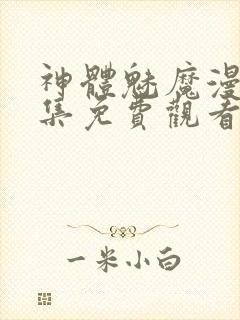 神體魅魔漫
集免費觀看
一米小白